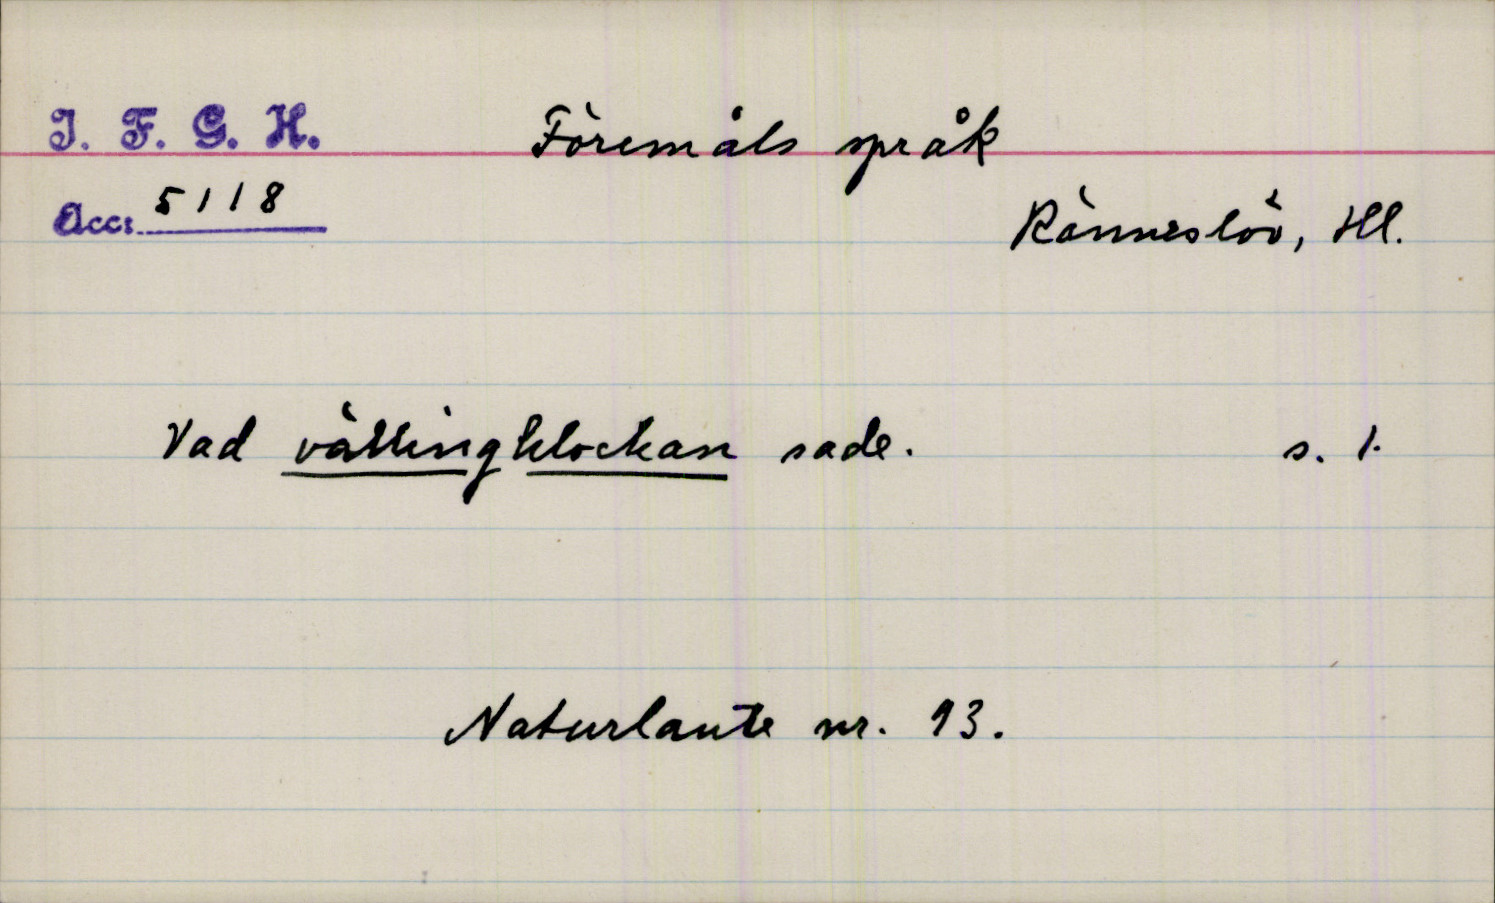 I. F. G. H.
Föremåls språk
Acc: 5118
Ränneslöv, Hl.
Vad vällingklockan sade. s. 1.
Naturlaute nr. 93.